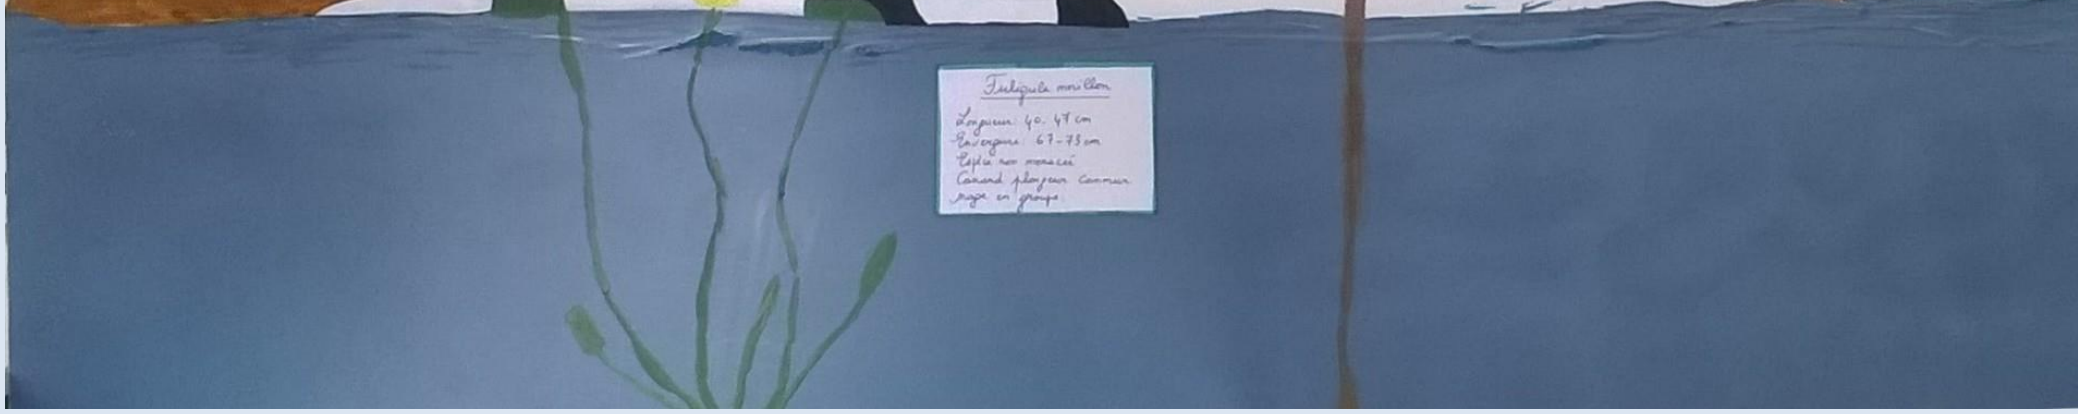 Fuligule morillon
Longueur: 40-47 cm
Envergure: 67-73 cm
Espèce non menacée
Canard plongeur commun
nage en groupe.